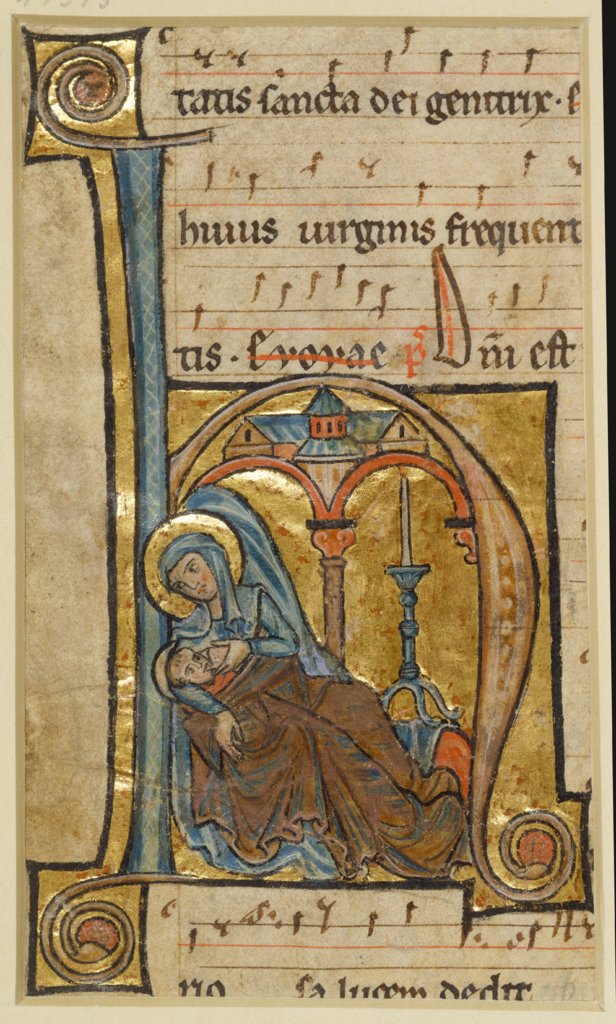 tatis sancta dei genitrix · 
huius uirginis frequent
tis · Evovae ps D̄m est
no sa lucem dedit